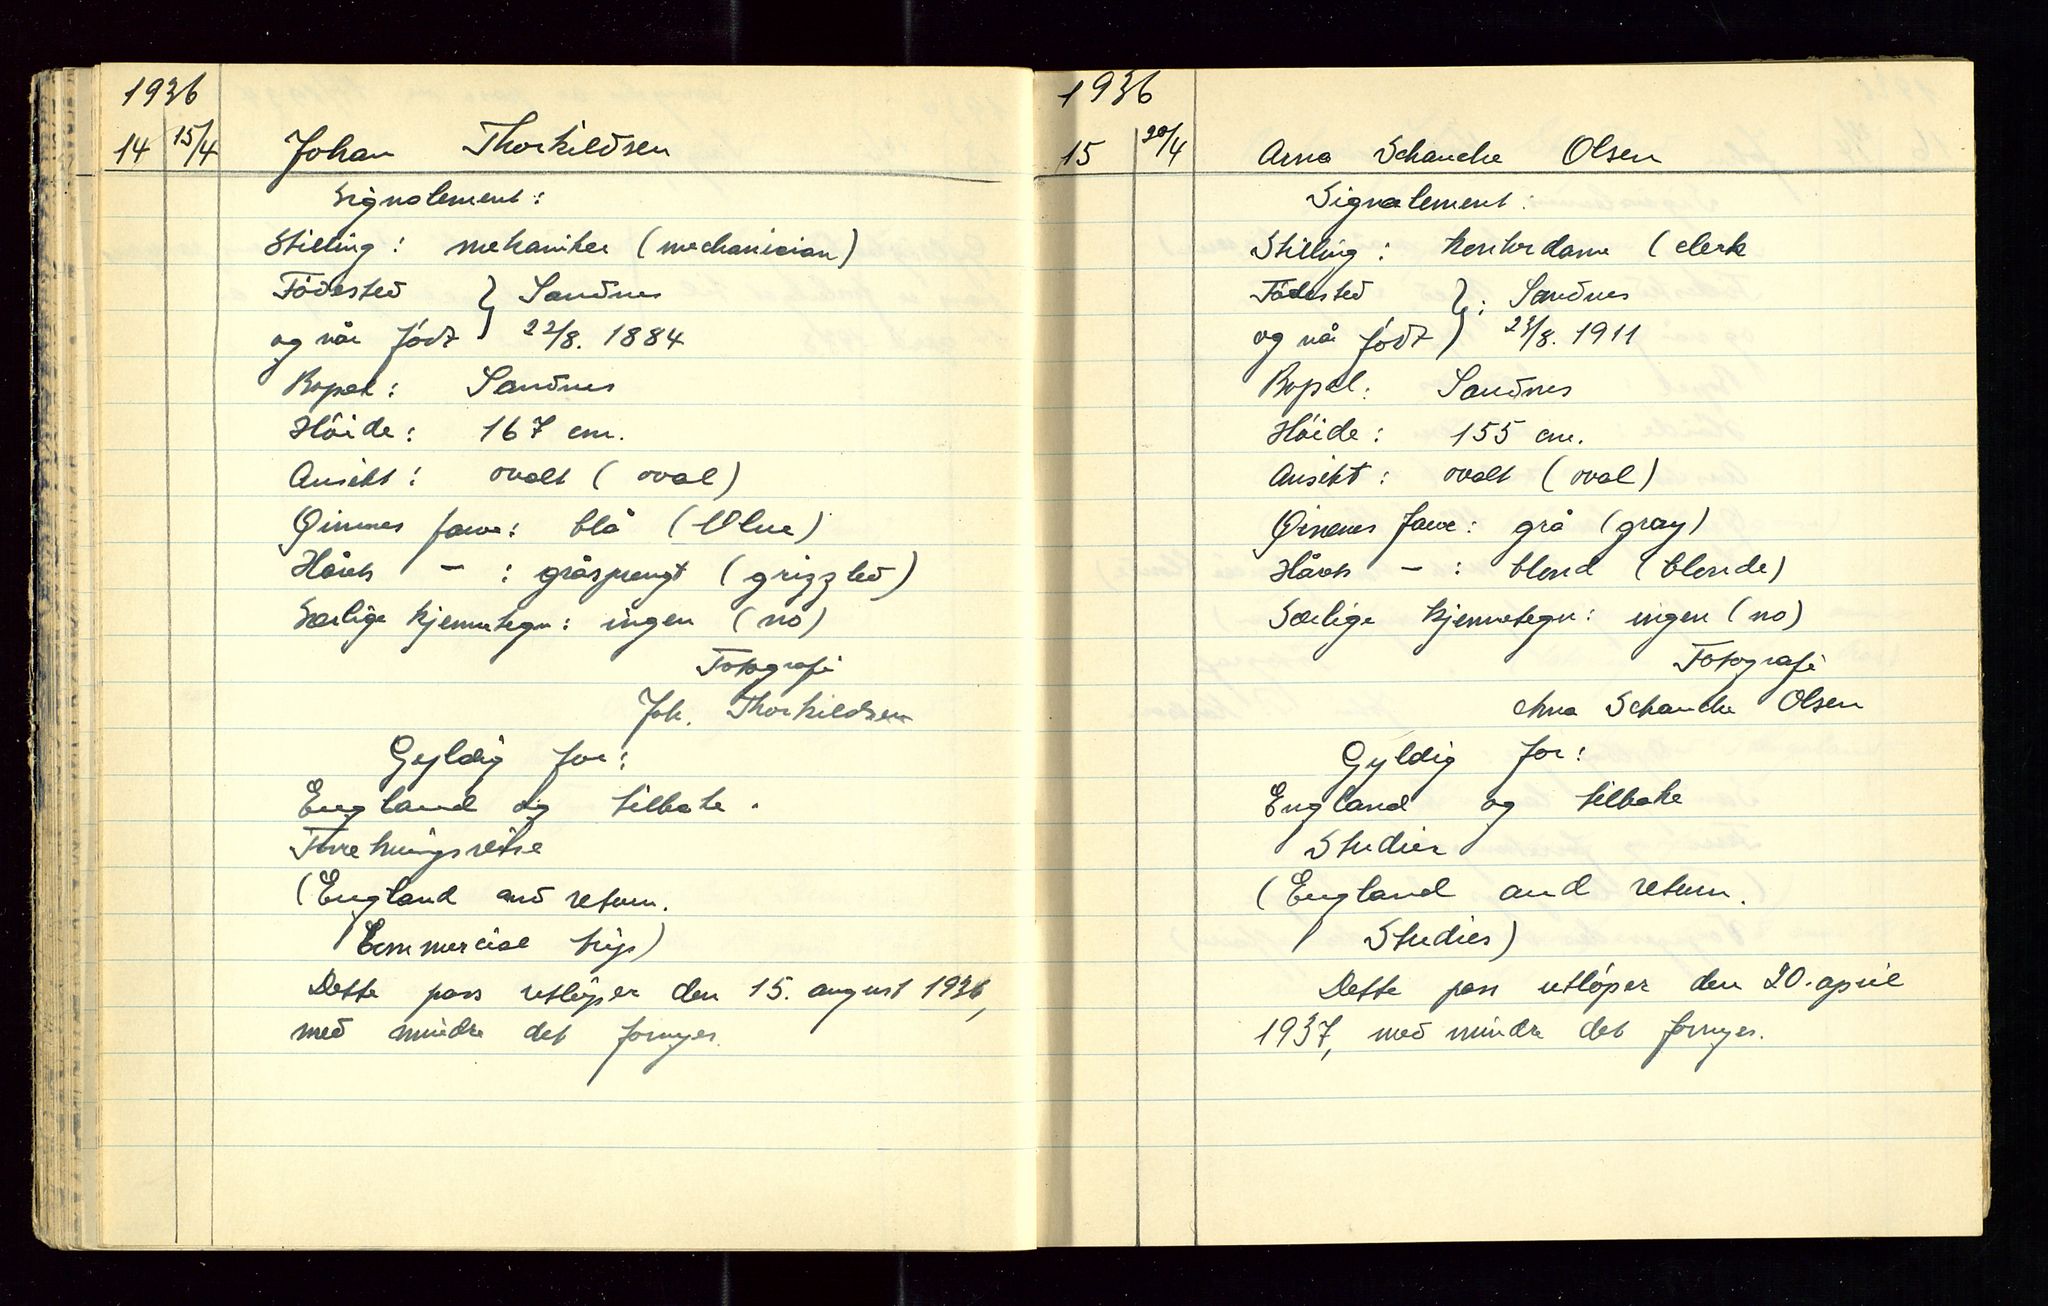 1936
14 15/4 Johan Thorkildsen
Signalement:
Stilling: mekaniker (mechanician)
Fødested } Sandnes
og når født } 22/8. 1884
Bopel: Sandnes
Høide: 167 cm.
Ansikt: ovalt (oval)
Øinenes farve: blå (blue)
Hårets - : gråsprengt (grizzled)
Særlige kjennetegn: ingen (no)
Fotografi
Joh. Thorkildsen
Gyldig for:
England og tilbake.
Forretningsreise
(England and return.
Commercial trip)
Dette pass utløper den 15. august 1936,
med mindre det fornyes.
1936
15 20/4 Arna Schancke Olsen
Signalement:
Stilling: kontordame (clerk
Fødested } : Sandnes
og når født } 23/8. 1911
Bopel: Sandnes
Høide: 155 cm.
Ansikt: ovalt (oval)
Øinenes farve: grå (gray)
Hårets - : blond (blonde)
Særlige kjennetegn: ingen (no)
Fotografi
Arna Schancke Olsen
Gyldig for:
England og tilbake
Studier
(England and return.
Studies)
Dette pass utløper den 20. april
1937, med mindre det fornyes.